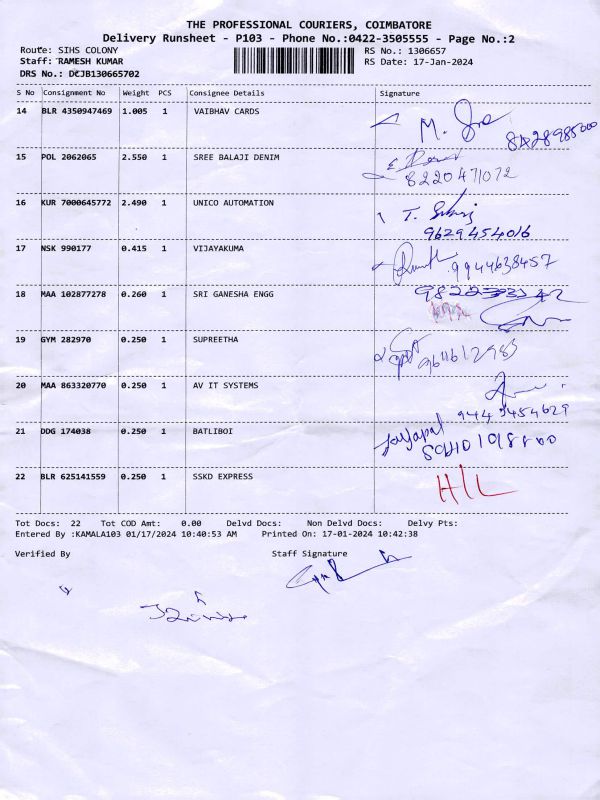 THE PROFESSIONAL COURIERS, COIMBATORE
Delivery Runsheet - P103 - Phone No.:0422-3505555 - Page No.:2
Route: SIHS COLONY RS No.: 1306657
Staff: RAMESH KUMAR RS Date: 17-Jan-2024
DRS No.: DCJB130665702
S No Consignment No Weight PCS Consignee Details Signature
14 BLR 4350947469 1.005 1 VAIBHAV CARDS
15 POL 2062065 2.550 1 SREE BALAJI DENIM
8220471072
16 KUR 7000645772 2.490 1 UNICO AUTOMATION
9629454016
17 NSK 990177 0.415 1 VIJAYAKUMA
9944638457
18 MAA 102877278 0.260 1 SRI GANESHA ENGG
19 GYM 282970 0.250 1 SUPREETHA
20 MAA 863320770 0.250 1 AV IT SYSTEMS
21 DDG 174038 0.250 1 BATLIBOI Jayapal
22 BLR 625141559 0.250 1 SSKD EXPRESS
Tot Docs: 22 Tot COD Amt: 0.00 Delvd Docs: Non Delvd Docs: Delvy Pts:
Entered By :KAMALA103 01/17/2024 10:40:53 AM Printed On: 17-01-2024 10:42:38
Verified By Staff Signature